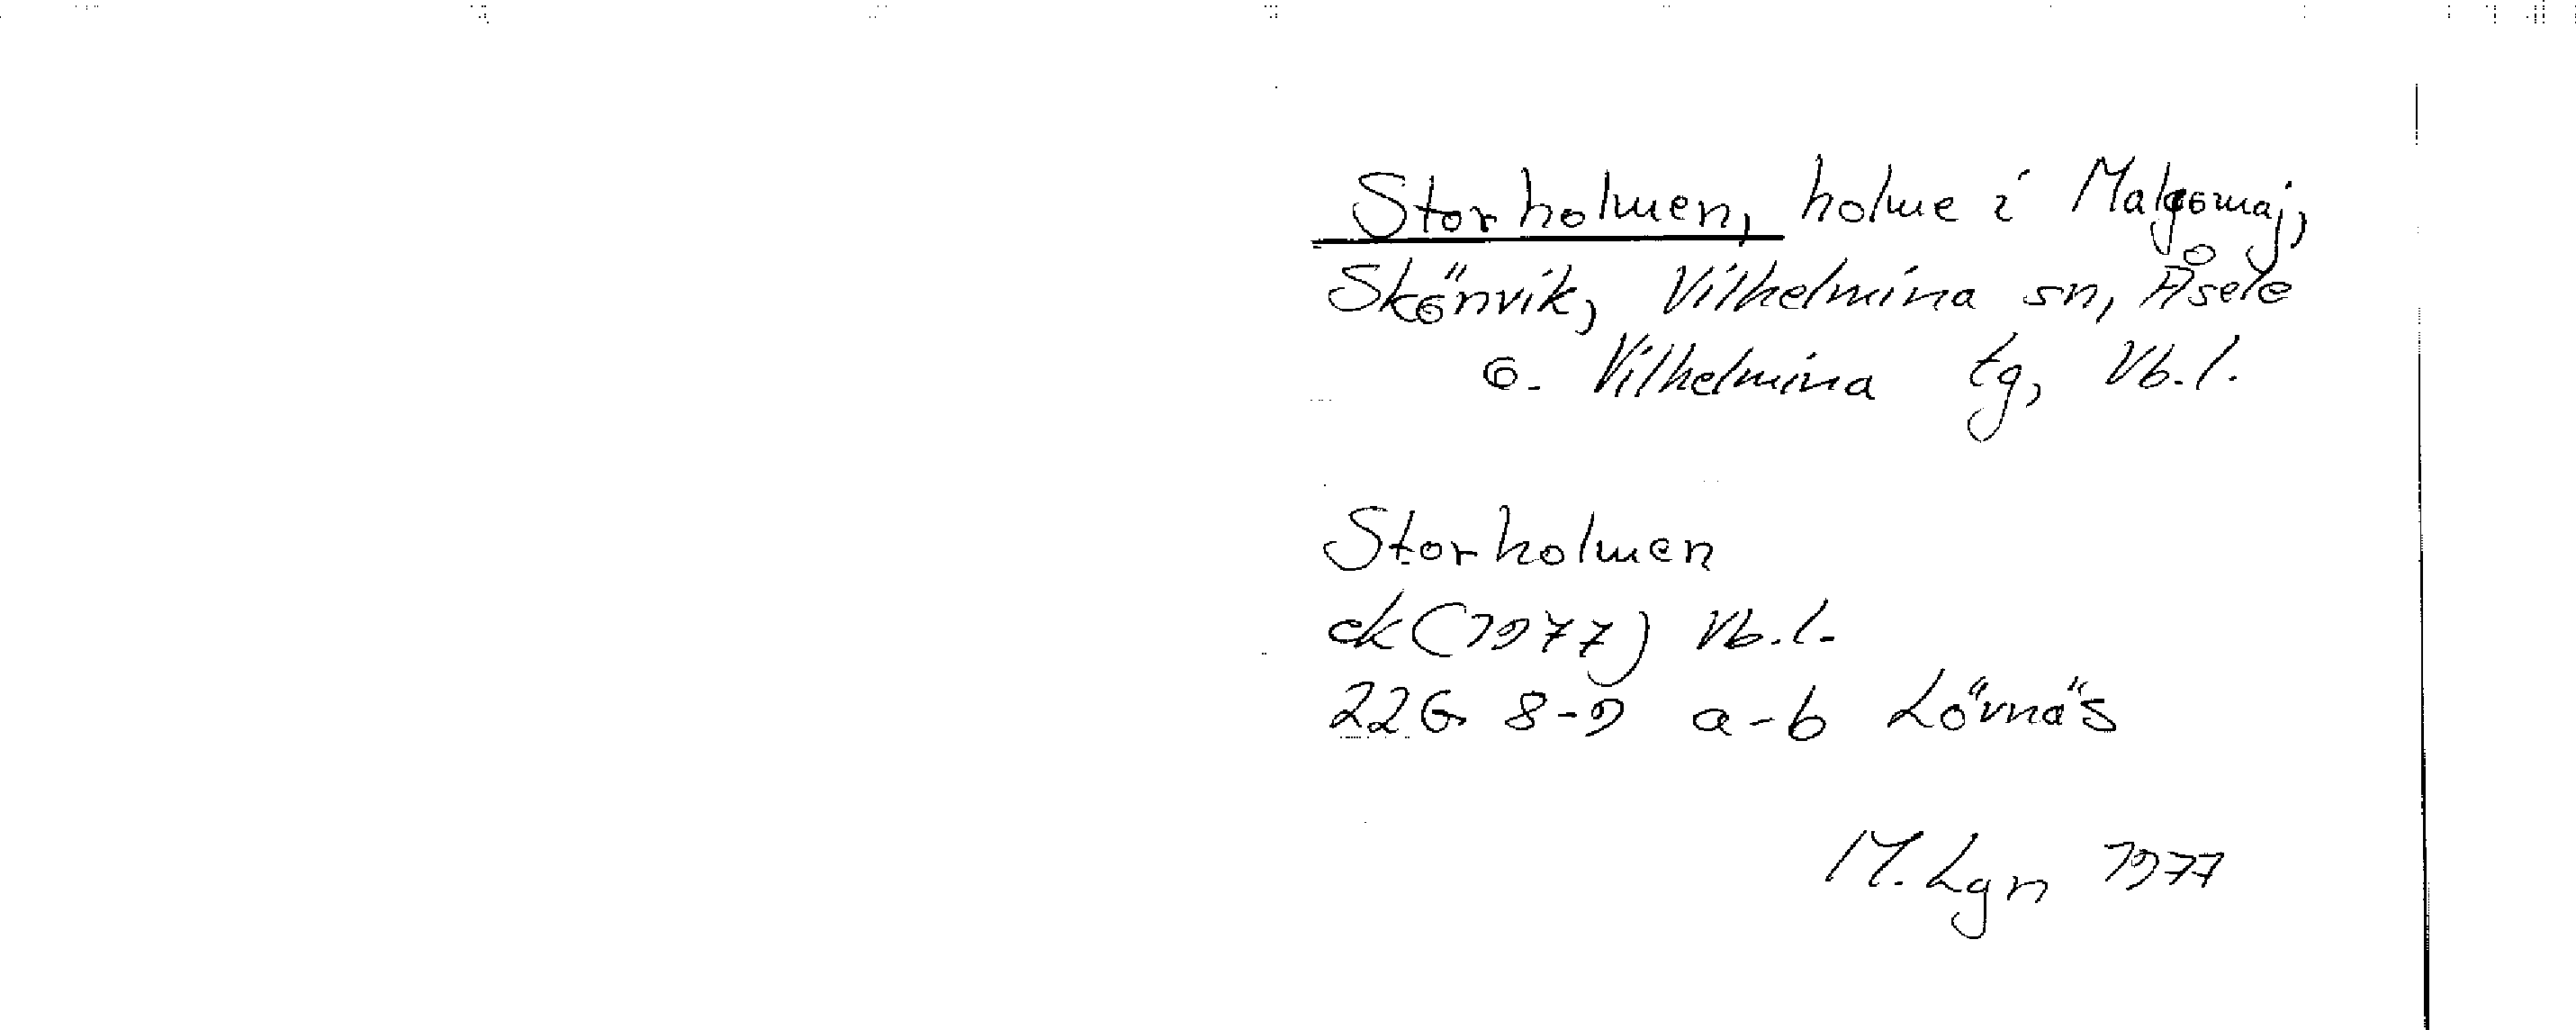 Storholmen, holme i Malgomaj,
Skönvik, Vilhelmina sn, Åsele
o. Vilhelmina tg, Vb.l.
Storholmen
ek (1977) Vb.l.
22G 8-9 a-b Lövnäs
M. Lgn 1977